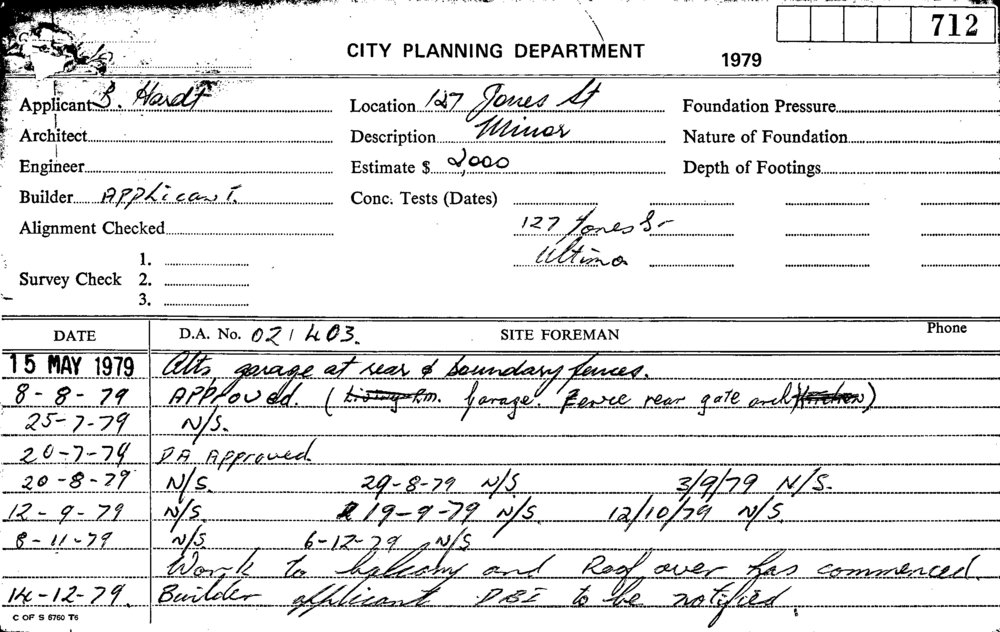 712
CITY PLANNING DEPARTMENT 1979
Applicant B. Hardt Location 127 Jones St Foundation Pressure
Architect Description Minor Nature of Foundation
Engineer Estimate $ 2,000 Depth of Footings
Builder APPLicanT. Conc. Tests (Dates)
Alignment Checked 127 Jones St
Ultimo
Survey Check 1.
2.
3.
DATE D.A. No. 02 1403. SITE FOREMAN Phone
15 MAY 1979 Alts garage at rear & boundary fences.
8-8-79 APPROVED. (Living Rm. Garage. Fence rear gate and Kitchen)
25-7-79 N/S.
20-7-79 DA Approved
20-8-79 N/S. 29-8-79 N/S. 3/9/79 N/S.
12-9-79 N/S. 19-9-79 N/S. 12/10/79 N/S.
8-11-79 N/S. 6-12-79 N/S
Work to balcony and Roof over has commenced.
14-12-79. Builder applicant DBI to be notified.
C OF S 5760 T6